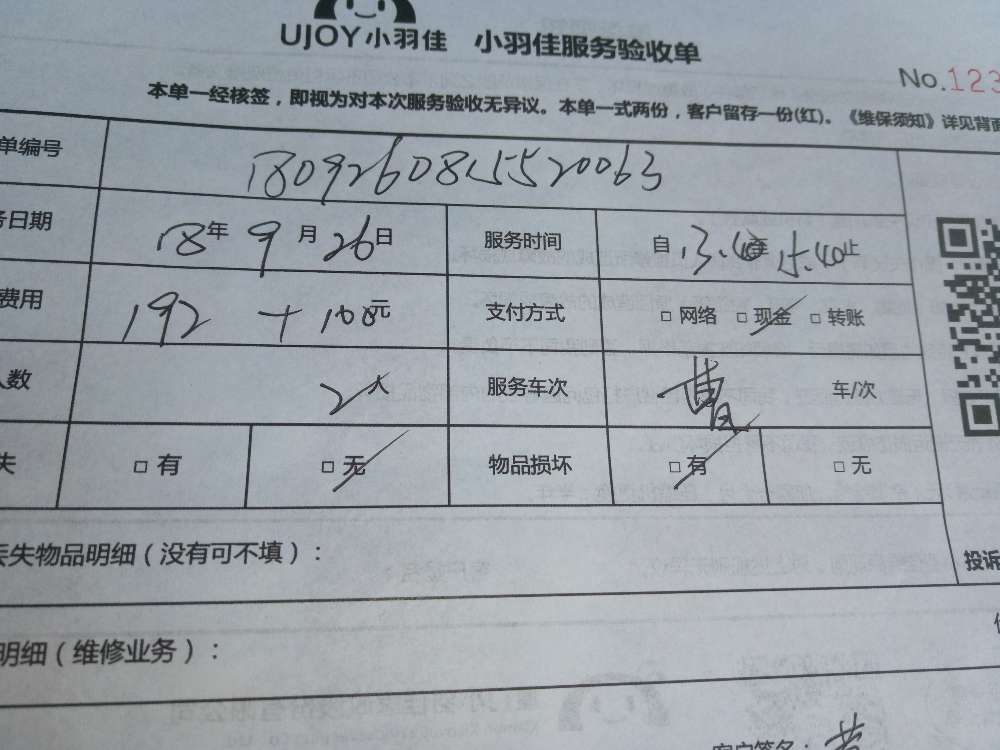 UJOY小羽佳 小羽佳服务验收单
No.123
本单一经核签，即视为对本次服务验收无异议。本单一式两份，客户留存一份(红)。《维保须知》详见背面
单编号 1809260815520063
务日期 18年 9月 26日 服务时间 自13.40至15.40止
费用 192 + 100元 支付方式 □网络 □现金 □转账
人数 2人 服务车次 车/次
失 □有 □无 物品损坏 □有 □无
投诉
丢失物品明细（没有可不填）：
明细（维修业务）：
客户签名：